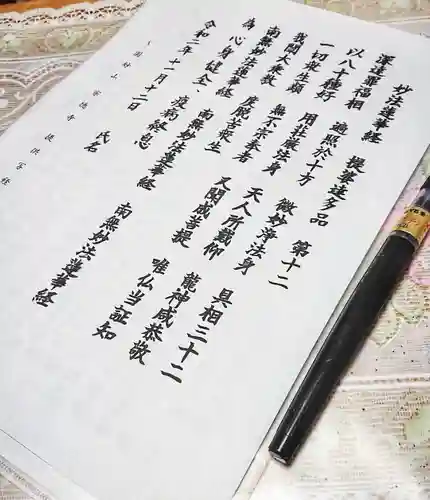 妙法蓮華経 提婆達多品 第十二
深達罪福相 遍照於十方 微妙浄法身 具相三十二
以八十種好 用荘厳法身 天人所戴仰 龍神咸恭敬
一切衆生類 無不宗奉者 又聞成菩提 唯仏当証知
我闡大乗教 度脱苦衆生 南無妙法蓮華経
南無妙法蓮華経
為 心身健全、疫病終息
令和二年十一月十二日
氏名
南無妙法蓮華経
提供写経